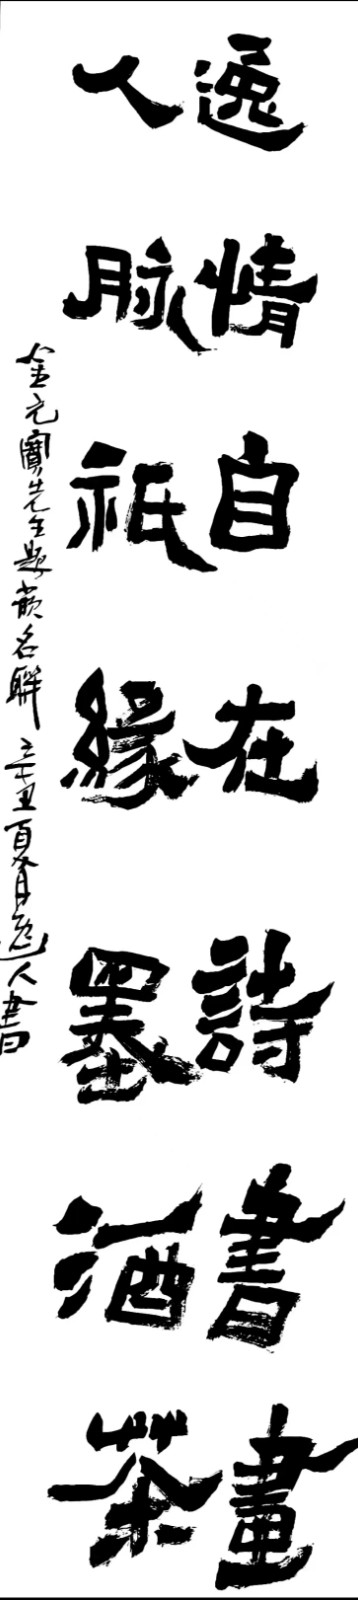 逸情自在詩書畫
人脉祇緣墨酒茶
金元寶先生題嵌名聯 辛丑夏月逸人書